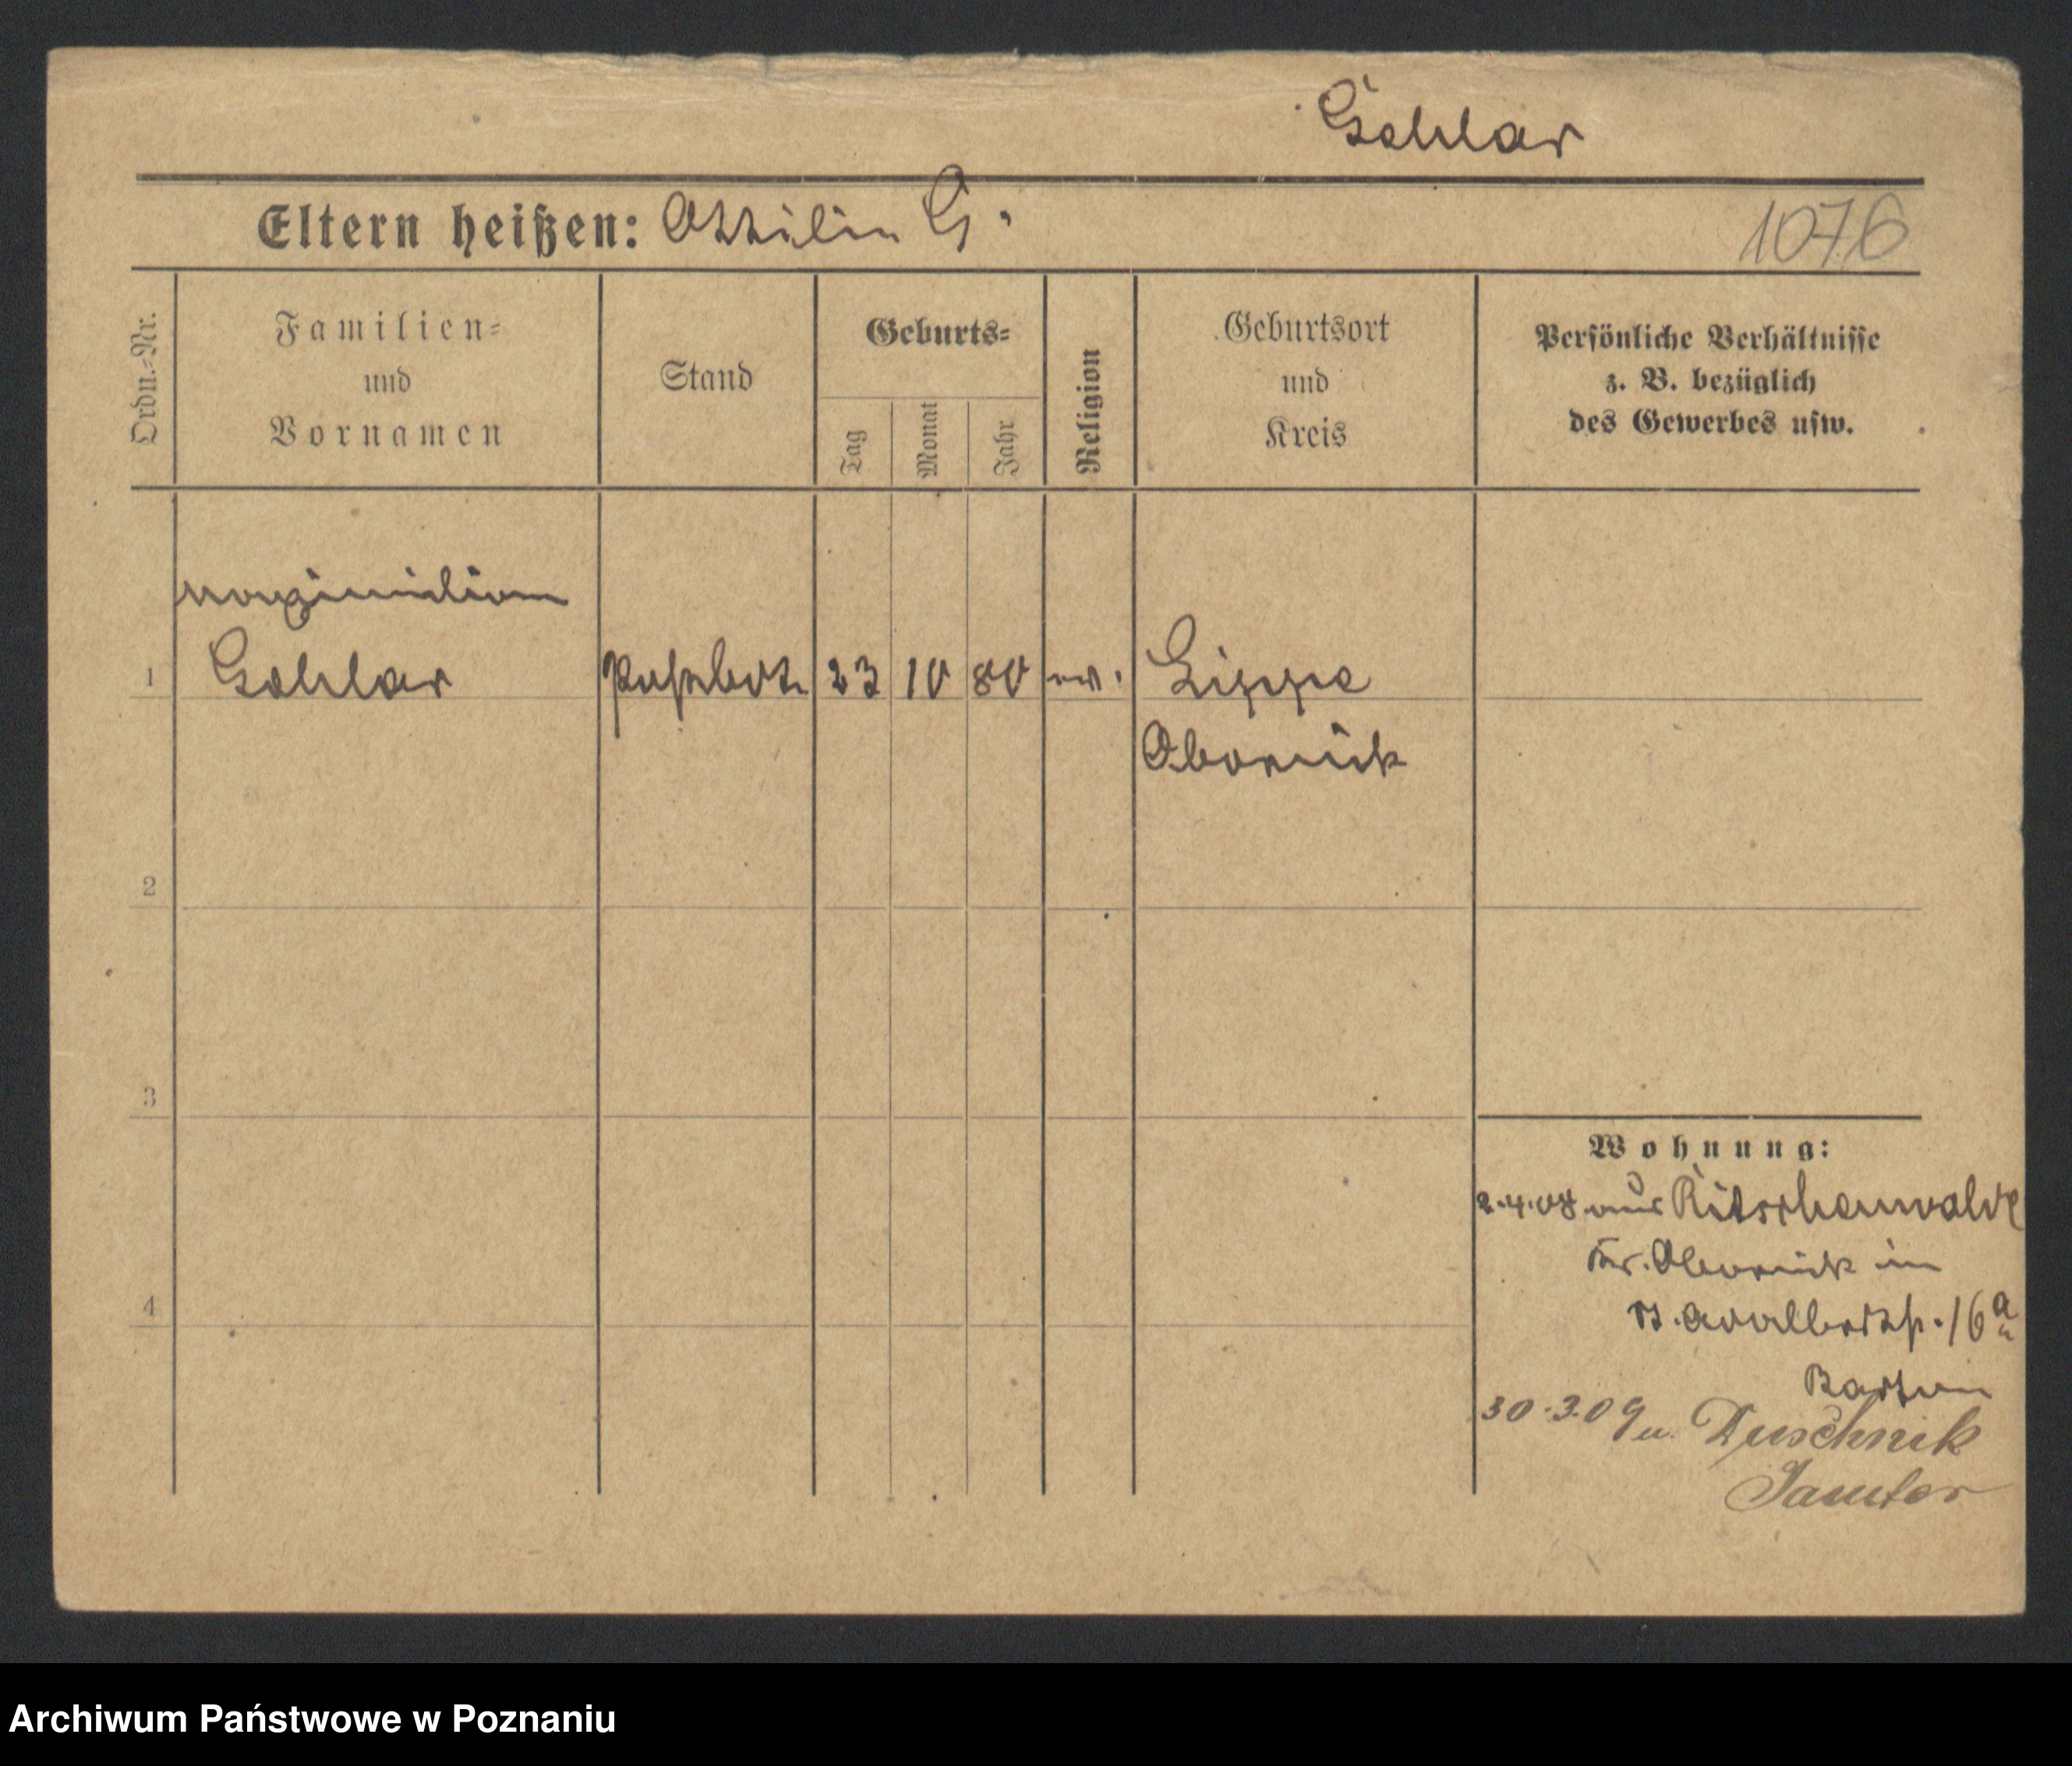 Gohlar
Eltern heißen: Ottilin G.
1076
Ordn.-Nr.
Familien-
und
Vornamen
Stand
Geburts-
Tag
Monat
Jahr
Religion
Geburtsort
und
Kreis
Persönliche Verhältnisse
z. B. bezüglich
des Gewerbes usw.
Maximilian
1 Gohlar 23 10 80 ev. Lippe
Obornik
2
3
4
Wohnung:
2.4.08 aus Ritschenwalde
Kr. Obornik in
St. Adalbertstr. 16a
30.3.09 n. Duschnik
Samter
Archiwum Państwowe w Poznaniu